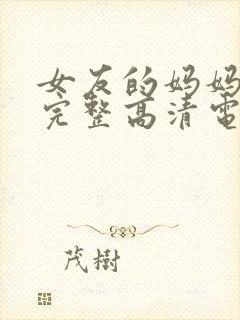 女友的妈妈
完整高清電
茂樹